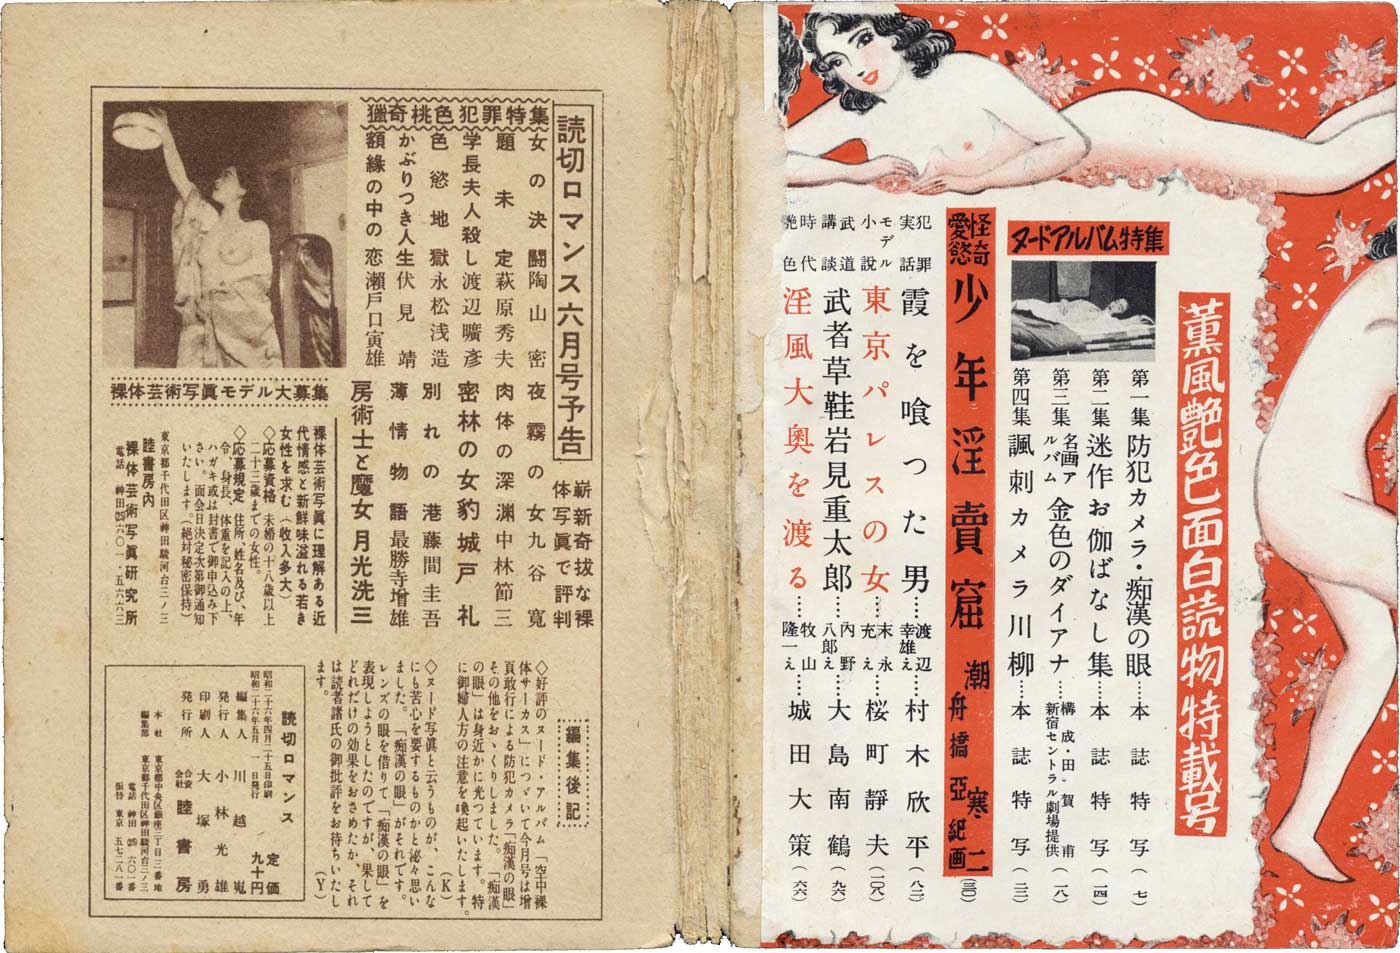 薫風艶色面白読物特載号
ヌードアルバム特集
第一集 防犯カメラ・痴漢の眼……本誌特写(七)
第二集 迷作お伽ばなし集……本誌特写(一四)
第三集 名画アルバム 金色のダイアナ……構成・田賀甫 新宿セントラル劇場提供(一八)
第四集 諷刺カメラ川柳……本誌特写(二二)
怪奇愛慾 少年淫売窟 潮寒二 舟橋亞紀画(三〇)
犯罪実話 霞を喰つた男……渡辺幸雄え……村木欣平(八二)
モデル小説 東京パレスの女……末永充え……桜町靜夫(一〇八)
武道講談 武者草鞋岩見重太郎……内野八郎え……大島南鶴(九六)
時代艶色 淫風大奥を渡る……牧山隆一え……城田大策(六六)
読切ロマンス六月号予告
嶄新奇抜な裸体写真で評判
獵奇桃色犯罪特集
女の決闘 陶山密
題未定 萩原秀夫
学長夫人殺し 渡辺曠彦
色慾地獄 永松浅造
かぶりつき人生 伏見靖
額縁の中の恋 瀬戸口寅雄
夜霧の女 九谷寛
肉体の深渊 中林節三
密林の女豹 城戸礼
別れの港 藤間圭吾
薄情物語 最勝寺増雄
房術士と魔女 月光洗三
裸体芸術写眞モデル大募集
裸体芸術写眞に理解ある近
代情感と新鮮味溢れる若き
女性を求む(收入多大)
◇応募資格 未婚の十八歳以上
二十三歳までの女性。
◇応募規定 住所、姓名及び、年
令、身長、体重を記入の上、
ハガキ或は封書で御申込み下
さい。面会日決定次第御通知
いたします。(絶対秘密保持)
東京都千代田区神田駿河台三ノ三
睦書房内
裸体芸術写眞研究所
電話 神田(25)六〇一・五六六三
編集後記
◇好評のヌード・アルバム「空中裸
体サーカス」につゞいて今月号は増
頁敢行による防犯カメラ「痴漢の眼」
その他をおゝくりしました。「痴漢
の眼」は身近かに光つています。特
に御婦人方の注意を喚起いたします。
(K)
◇ヌード写眞と云うものが、こんな
にも苦心を要するものかと泌々思い
ました。「痴漢の眼」がそれです。
レンズの眼を借りて「痴漢の眼」を
表現しようとしたのですが、果して
どれだけの効果をおさめたか、それ
は読者諸氏の御批評をお待ちいたし
ます。(Y)
読切ロマンス 定価九十円
昭和二十六年四月二十五日印刷
昭和二十六年五月一日発行
編集人 川越嵬
発行人 小林光雄
印刷人 大塚勇
発行所 合資会社 睦書房
本社 東京都中央区銀座三丁目三番地
編集部 東京都千代田区神田駿河台三ノ三
電話 神田(25)六〇一番
振替 東京 五七二八一番